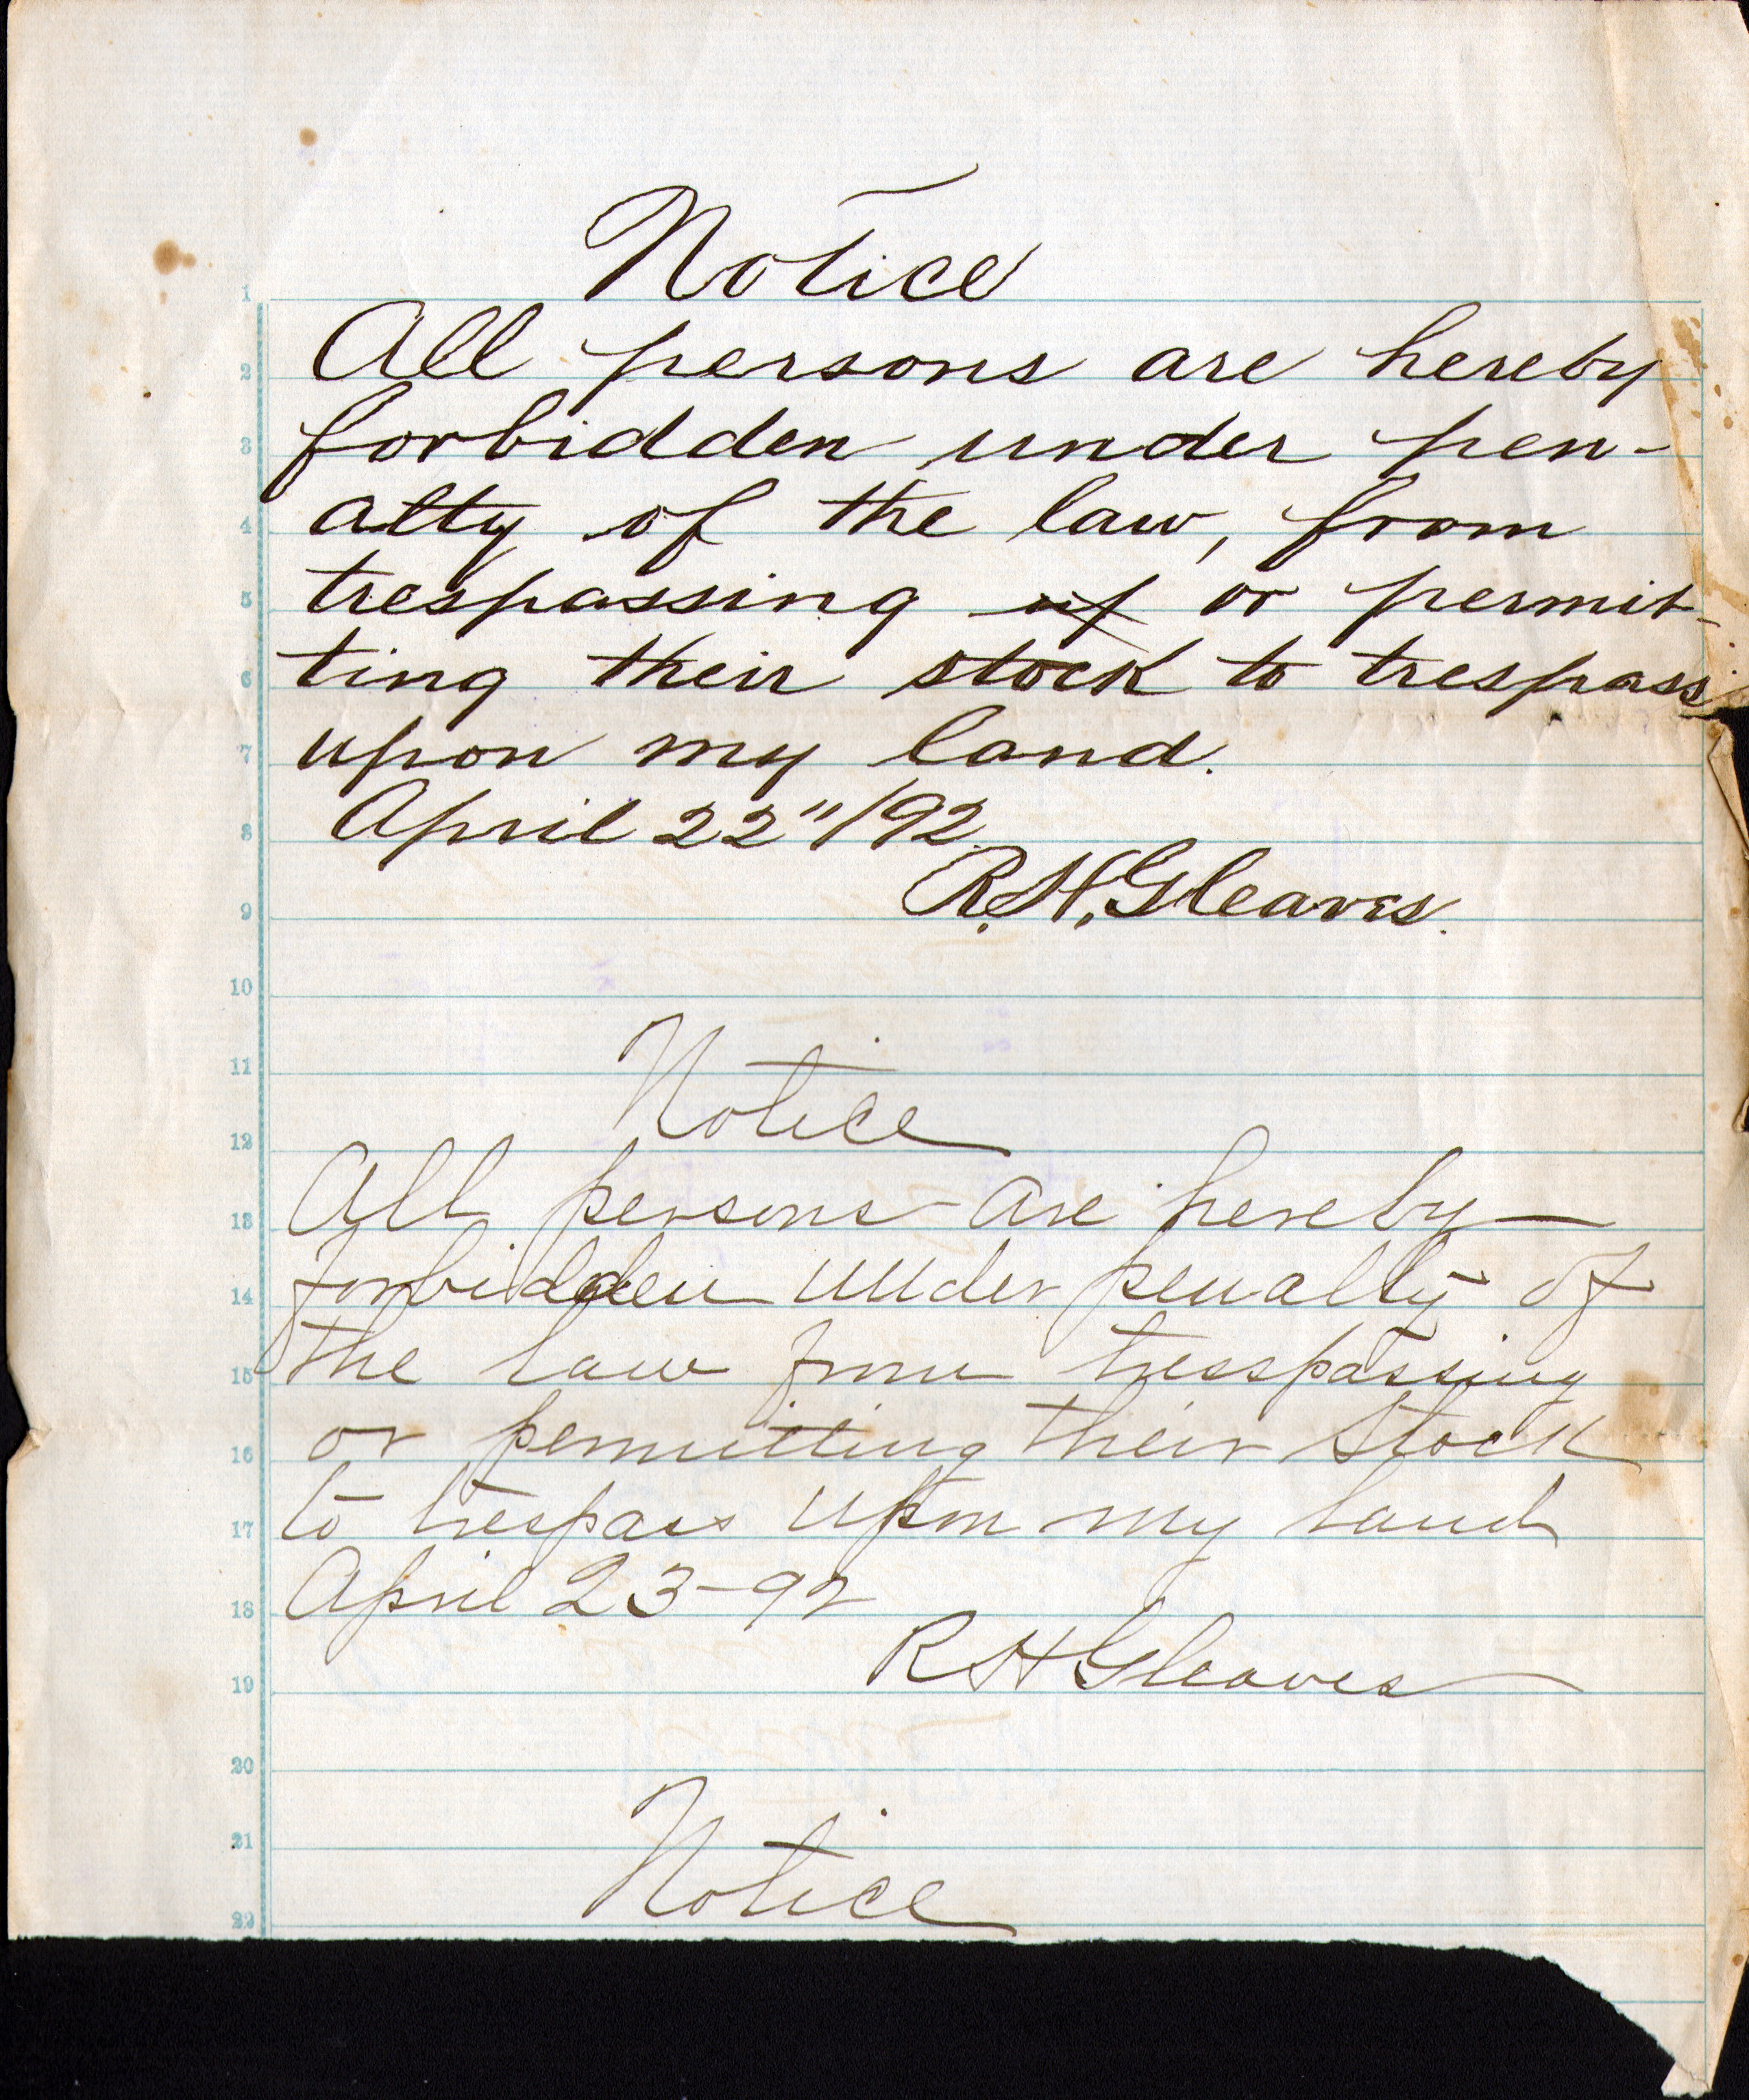 Notice
All persons are hereby
forbidden under pen-
alty of the law, from
trespassing up or permit-
ting their stock to trespass
upon my land.
April 22"/92
R.H. Gleaves.
Notice
All persons are hereby
forbidden under penalty of
the law from tresspassing
or permitting their Stock
to trespass upon my land
April 23-92
R H Gleaves
Notice
1
2
3
4
5
6
7
8
9
10
11
12
13
14
15
16
17
18
19
20
21
22